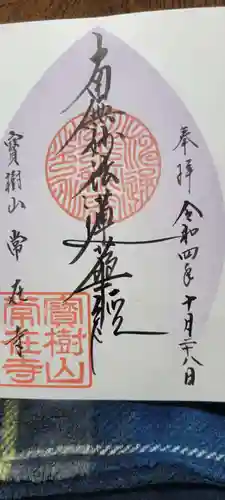 奉拝 令和四年十月二十八日
南無妙法蓮華経
寳樹山 常在寺
寳樹山
常在寺